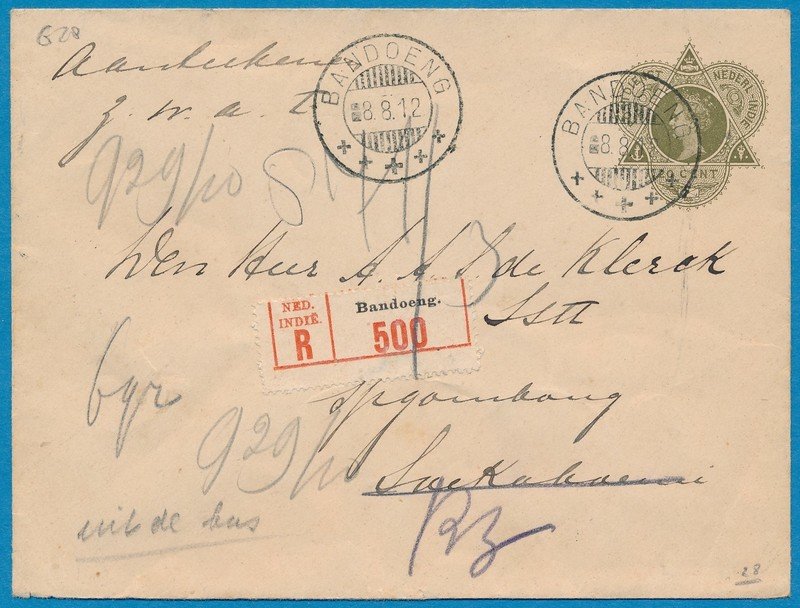 G28
Aanteekenen
z. w. a. t.
BANDOENG
8.8.12
BANDOENG
8.8
NEDERL. INDIE
CENT
929/10
Den Heer A. A. S. de Klerck
NED. INDIË.
R
Bandoeng.
500
3
929/10
Soekaboemi
uit de bus
28